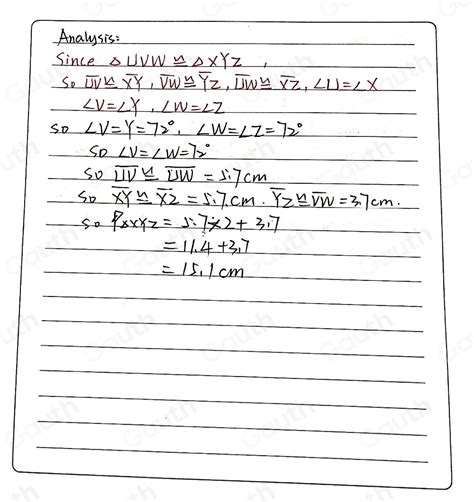 Analysis:
Since △UVW ≌ △XYZ,
So UV ≌ XY, VW ≌ YZ, UW ≌ XZ, ∠U=∠X
∠V=∠Y, ∠W=∠Z
so ∠V=Y=72°, ∠W=∠Z=72°
so ∠V=∠W=72°
so UV ≌ UW = 5.7cm
so XY ≌ XZ = 5.7cm. YZ ≌ VW = 3.7cm.
so = 5.7×2+3.7
= 11.4+3.7
= 15.1cm
Gauth